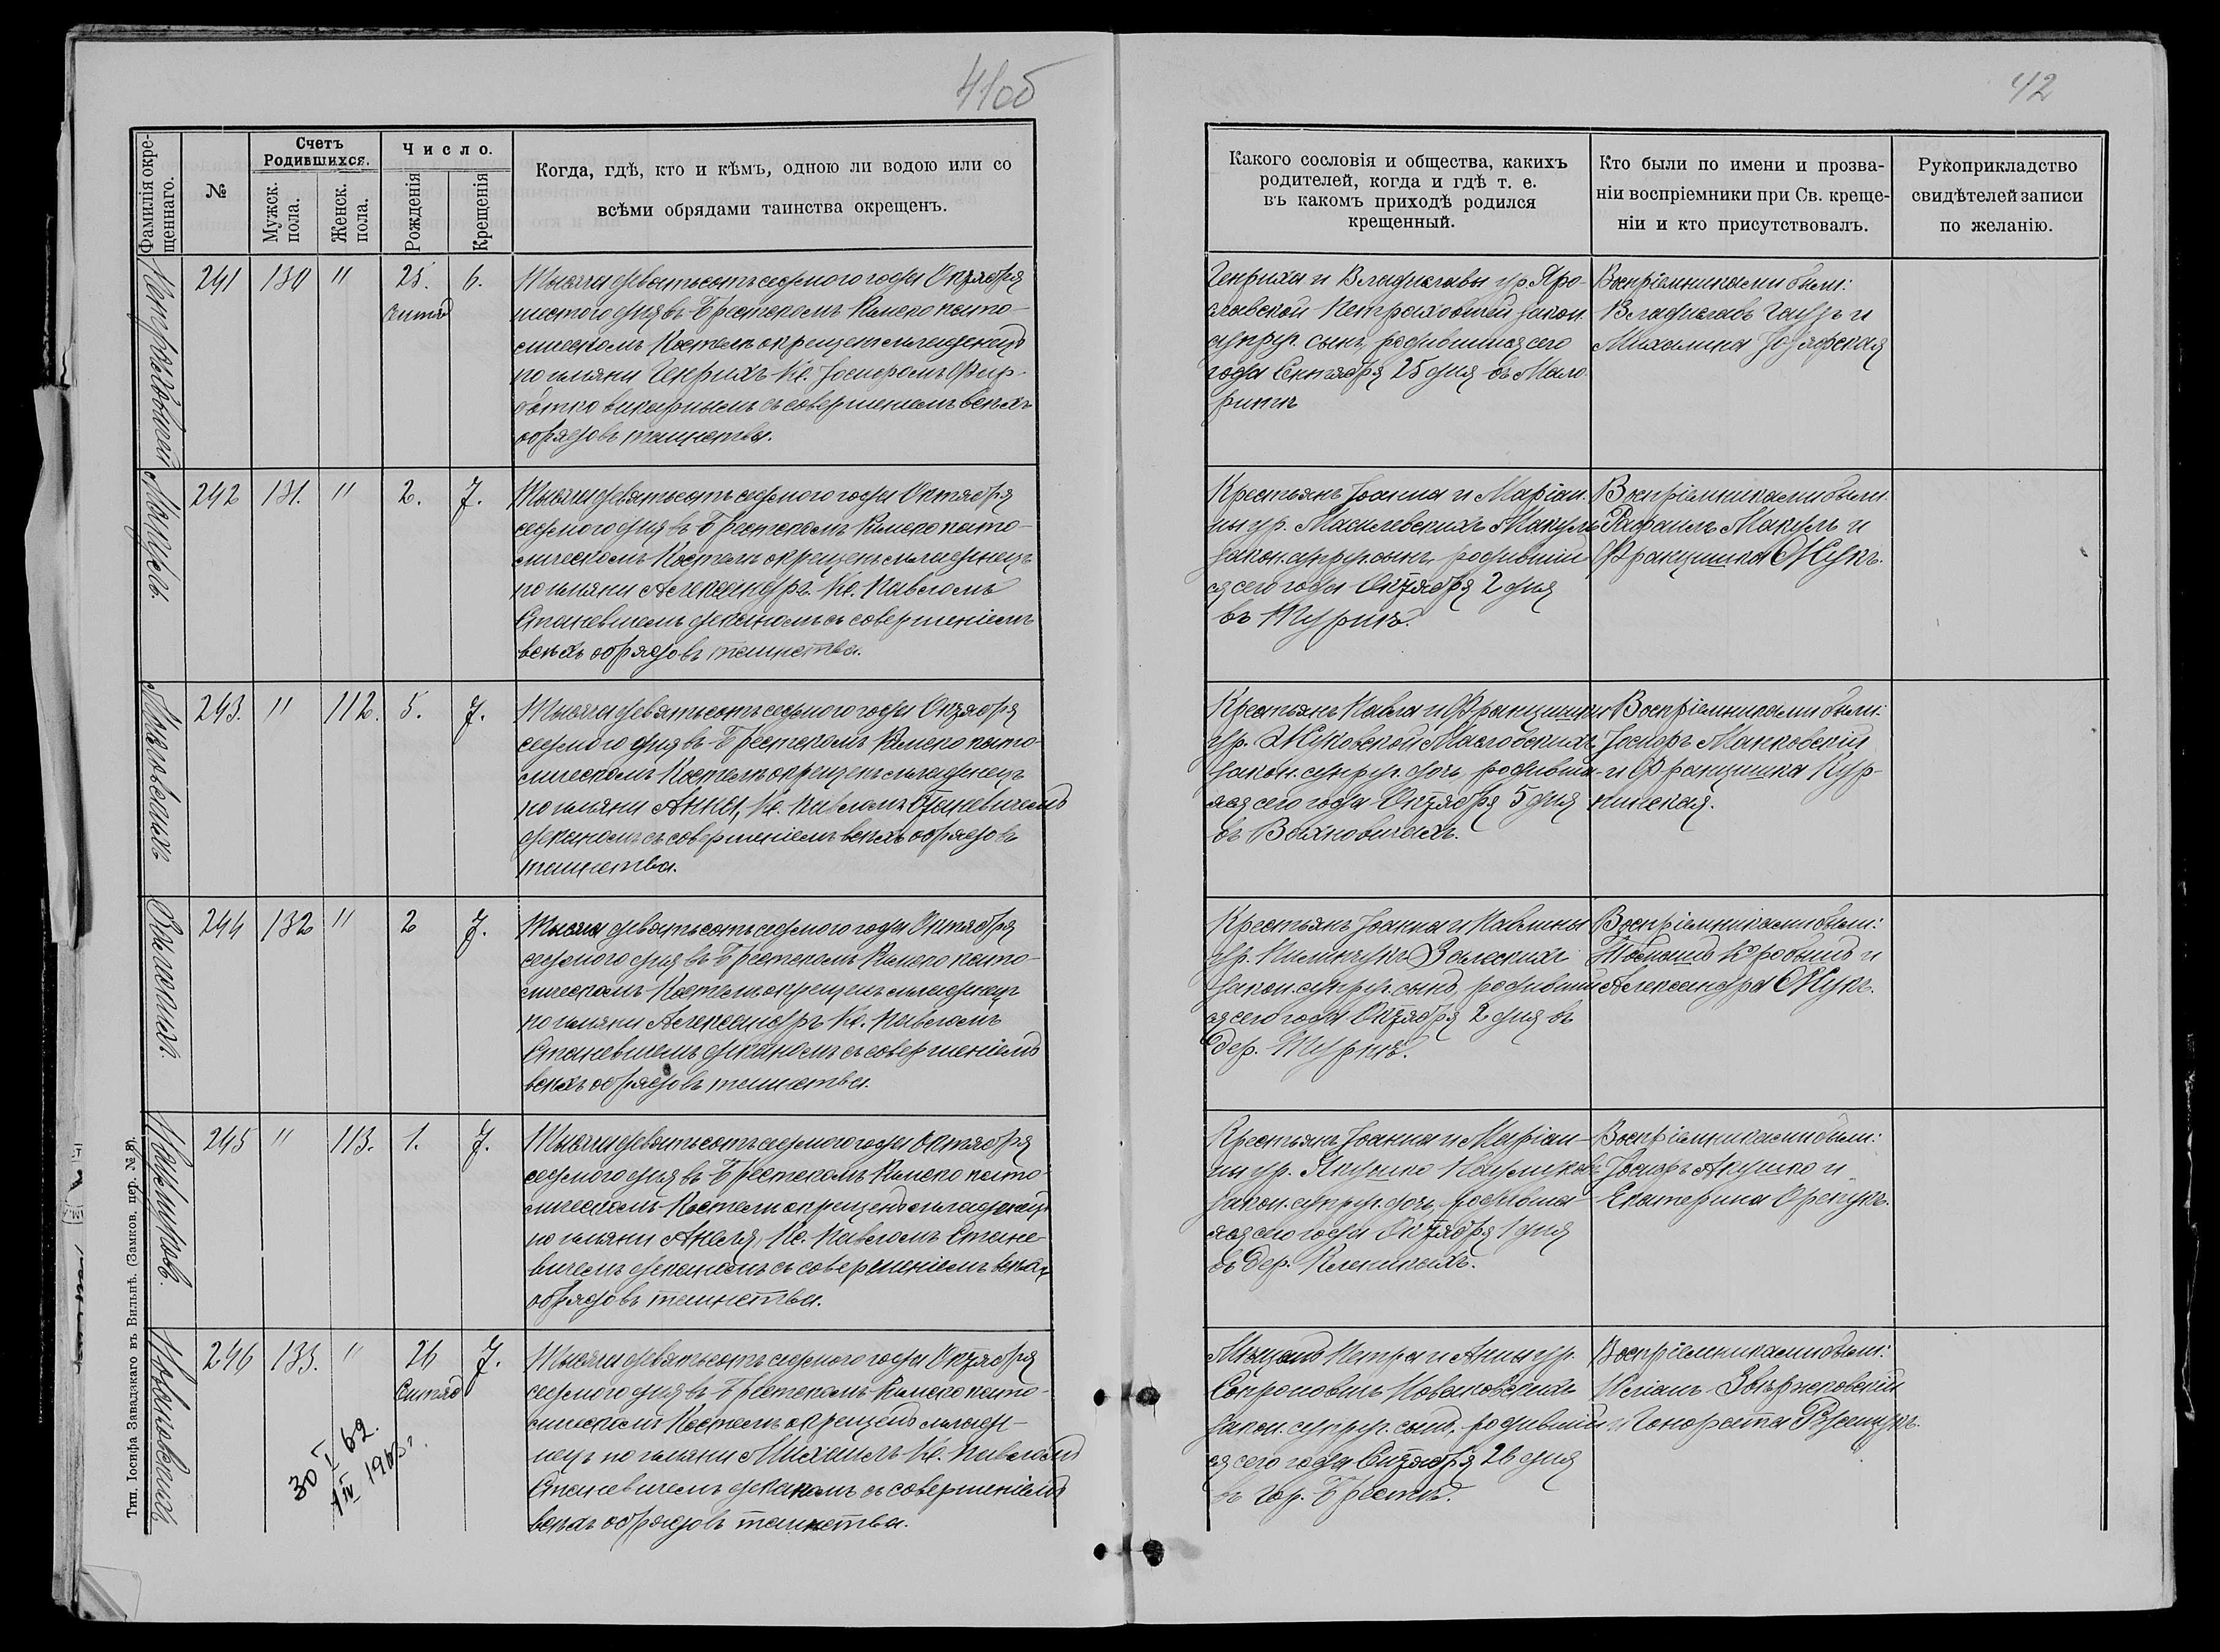 41об
Фамилія окре-
щеннаго.
№
Счетъ
Родившихся.
Мужск.
пола.
Женск.
пола.
Число.
Рожденія
Крещенія
Когда, гдѣ, кто и кѣмъ, одною ли водою или со
всѣми обрядами таинства окрещенъ.
241
130
"
25.
6.
Тысяча девятьсотъ седьмого года Октября
шестого дня въ Брестскомъ Римско като-
лическомъ Костелѣ окрещенъ младенецъ
по имяни Генрихъ Кс. Іосифомъ
викарнымъ съ совершеніемъ всѣхъ
обрядовъ таинства.
Макуль
242
131.
"
2.
7.
Тысяча девятьсотъ седьмого года Октября
седьмого дня въ Брестскомъ Римско като-
лическомъ Костелѣ окрещенъ младенецъ
по имяни Александръ. Кс. Павломъ
Станевичемъ деканомъ съ совершеніемъ
всѣхъ обрядовъ таинства.
243.
"
112.
5.
7.
Тысяча девятьсотъ седьмого года Октября
седьмого дня въ Брестскомъ Римско като-
лическомъ Костелѣ окрещенъ младенецъ
по имяни Анна, Кс. Павломъ Станевичемъ
деканомъ съ совершеніемъ всѣхъ обрядовъ
таинства.
244
132
"
2
7.
Тысяча девятьсотъ седьмого года Октября
седьмого дня въ Брестскомъ Римско като-
лическомъ Костелѣ окрещенъ младенецъ
по имяни Александръ Кс. Павломъ
Станевичемъ деканомъ съ совершеніемъ
всѣхъ обрядовъ таинства.
245
"
113.
1.
7.
Тысяча девятьсотъ седьмого года Октября
седьмого дня въ Брестскомъ Римско като-
лическомъ Костелѣ окрещенъ младенецъ
по имяни Анеля, Кс. Павломъ Стане-
вичемъ деканомъ съ совершеніемъ всѣхъ
обрядовъ таинства.
246
133.
"
26
7.
Тысяча девятьсотъ седьмого года Октября
седьмого дня въ Брестскомъ Римско като-
лическомъ Костелѣ окрещенъ младе-
нецъ по имяни Михаилъ Кс. Павломъ
Станевичемъ деканомъ съ совершеніемъ
всѣхъ обрядовъ таинства.
30 I 62.
Тип. Іосифа Завадзкаго въ Вильнѣ. (Замков. пер. № 8).
42
Какого сословія и общества, какихъ
родителей, когда и гдѣ т. е.
въ какомъ приходѣ родился
крещенный.
Кто были по имени и прозва-
ніи воспріемники при Св. креще-
ніи и кто присутствовалъ.
Рукоприкладство
свидѣтелей записи
по желанію.
Генриха и Владиславы ур. Яро-
славской закон.
супруг. сынъ, родившійся сего
года Сентября 25 дня въ Мало
ритѣ
Воспріемниками были:
Владиславъ и
Михалина
Крестьянъ Іоанна и Маріан-
ны ур. Макуль
закон. супруг. сынъ, родившій
ся сего года Октября 2 дня
въ Турнѣ.
Воспріемниками были
Рафаилъ Макуль и
Францишка Жукъ.
Крестьянъ Павла и Францишки
ур. Жуковской Масловскихъ
закон. супруг. дочь, родивша-
яся сего года Октября 5 дня
въ Вохновичахъ.
Воспріемниками были:
Іосифъ Малковскій
и Францишка
Крестьянъ Іоанна и Павлины
ур. Залескихъ
закон. супруг. сынъ, родившій
ся сего года Октября 2 дня въ
дер. Турнѣ.
Воспріемниками были:
и
Александра Жукъ.
Крестьянъ Іоанна и Маріан-
ны ур. Якушко
закон. супруг. дочь, родивша-
яся сего года Октября 1 дня
въ дер. Клейникахъ.
Воспріемниками были:
Іосифъ Акушко и
Екатерина
Мѣщанъ Петра и Анны ур.
Сопроновичъ Новаковскихъ
закон. супруг. сынъ, родившій
ся сего года Сентября 26 дня
въ гор. Брестѣ.
Воспріемниками были:
и Гонората